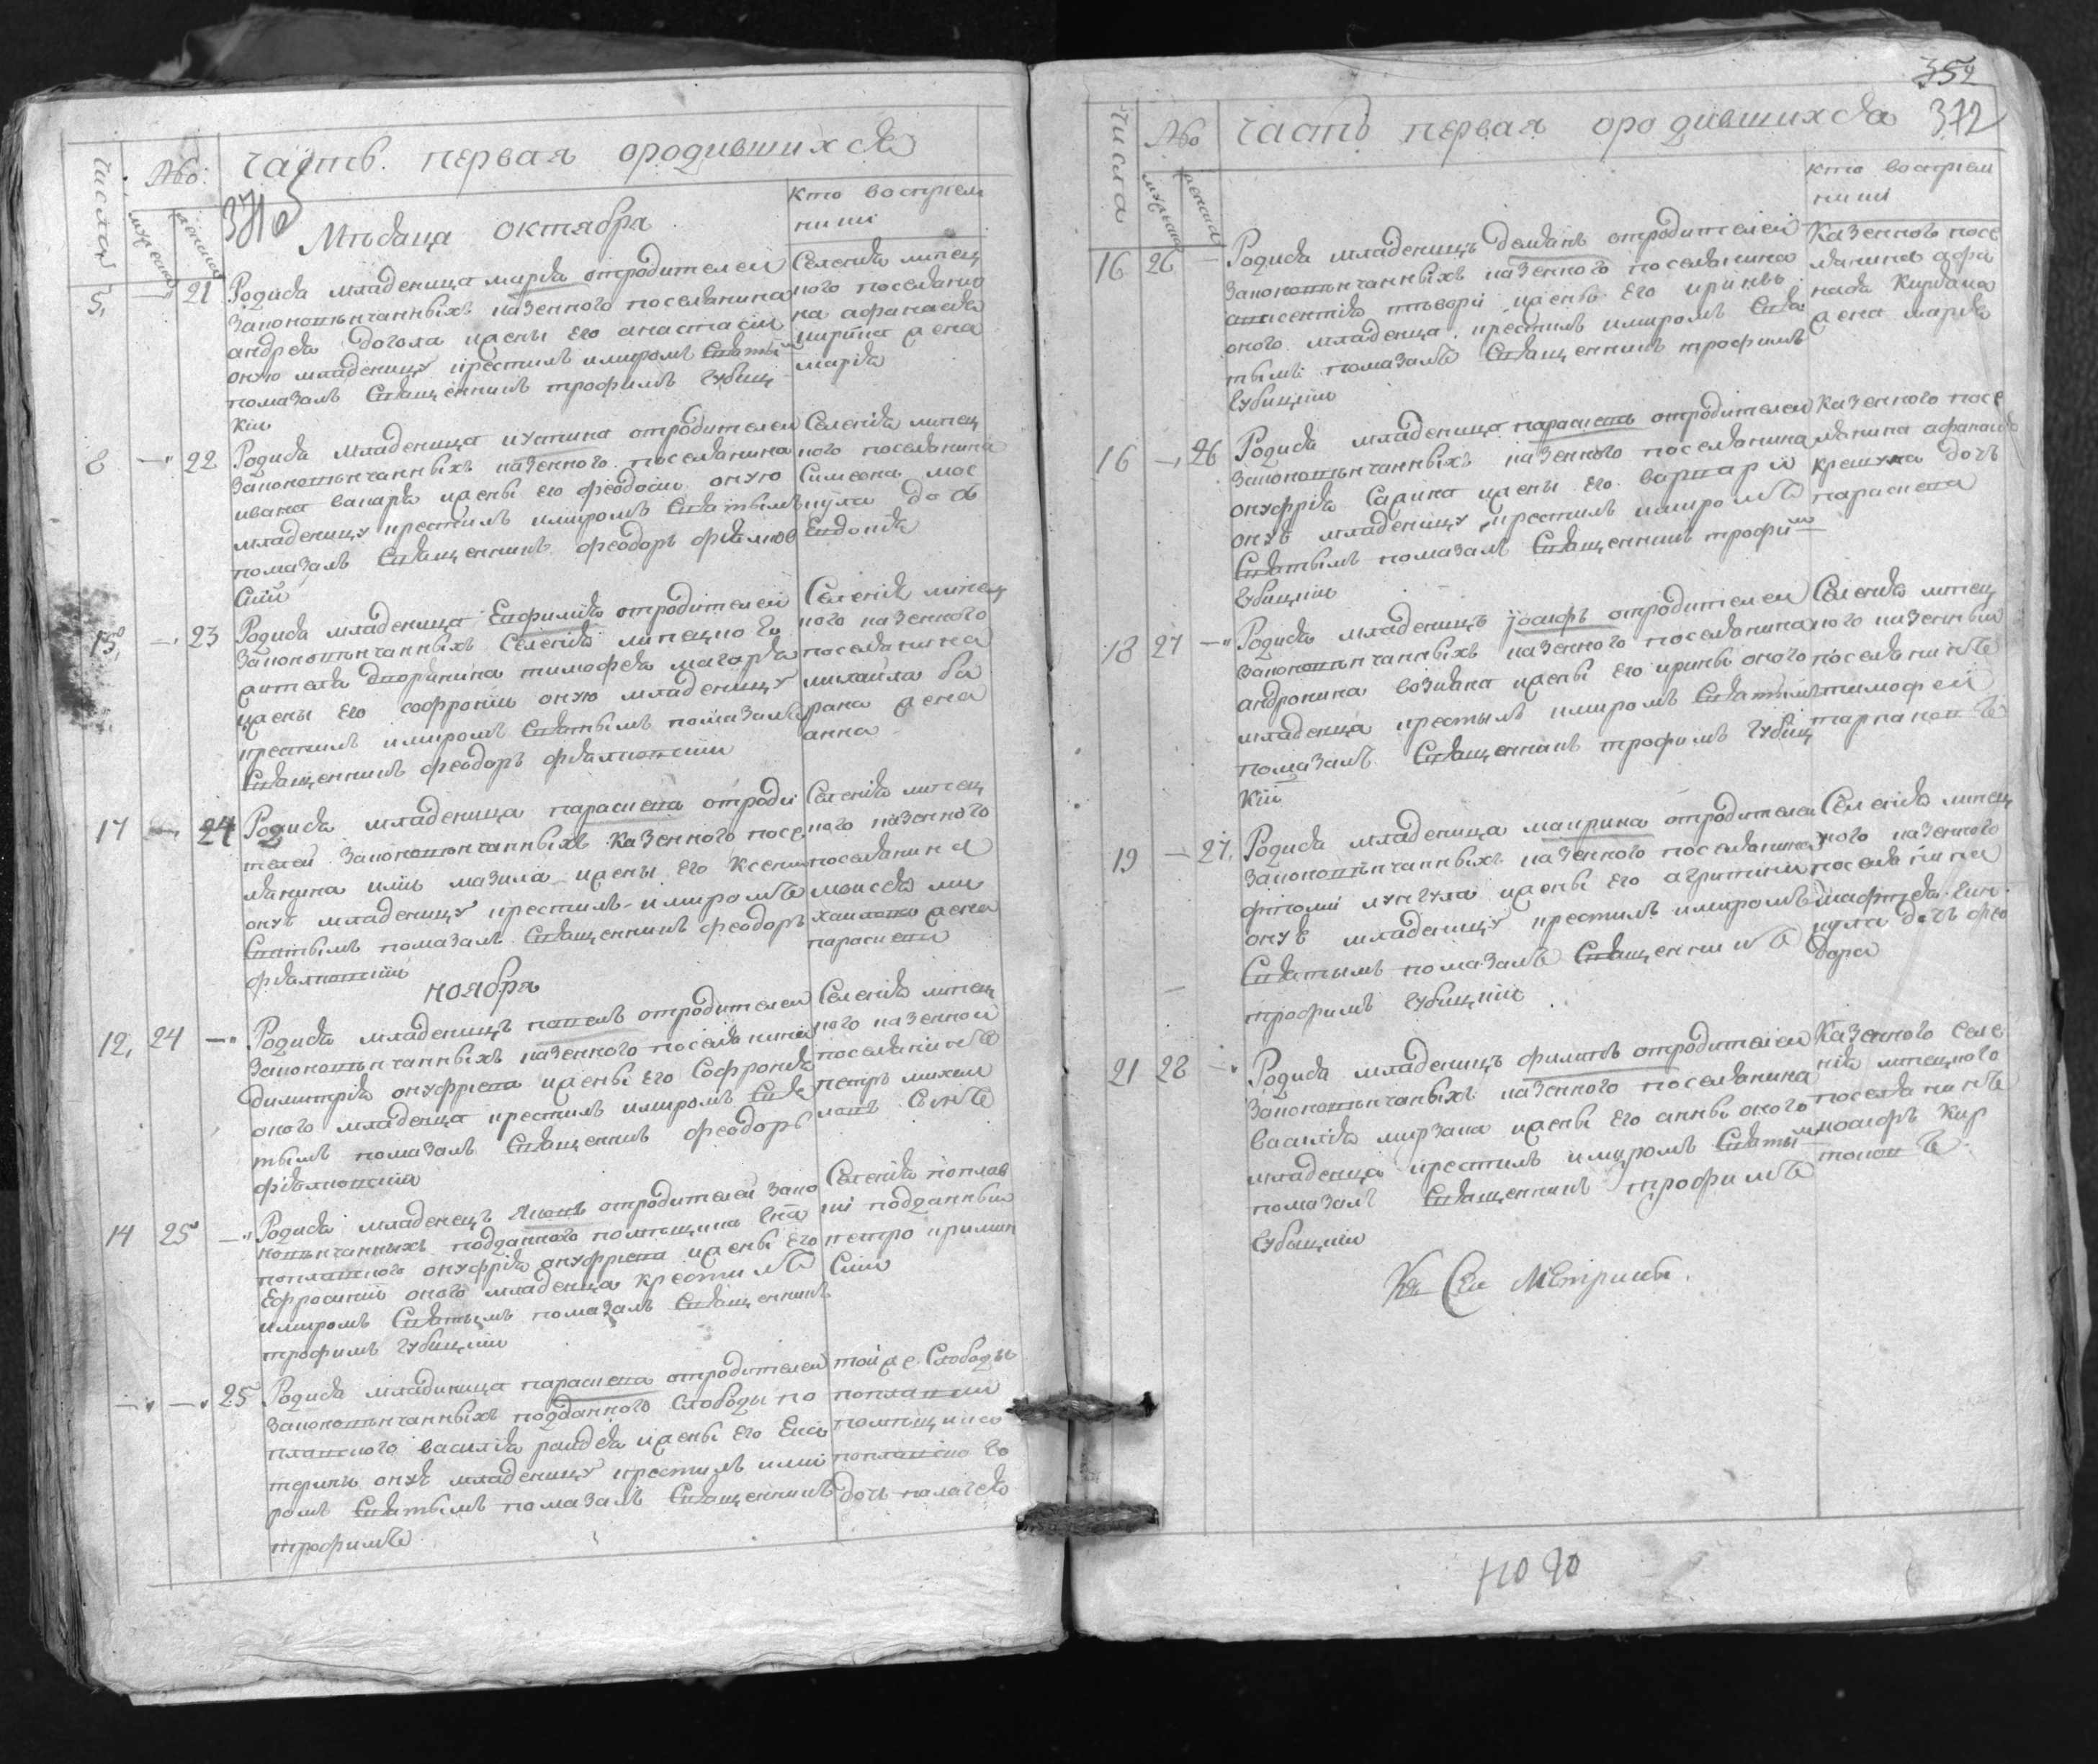 Часть первая о родившихся
Числа
№о
мужеска
женска
371 об
Мѣсяца октября
кто восприем
ники
5 — 21
Родися младеница марѳа от родителей
законовѣнчанныхъ казенного поселянина
андрея жены его анастасіи
оную младеницу крестилъ и миромъ святы
помазалъ священникъ трофимъ губиц
кій
Селенія липец
кого поселяни
на афанасія
жена
марія
8 — 22
Родися младеница иустина от родителей
законовѣнчанныхъ казенного поселянина
ивана жены его феодосіи оную
младеницу крестилъ и миромъ святымъ
помазалъ священникъ феодоръ фіялков
скій
Селенія липец
кого поселянина
Симеона мос
кула дочь
Евдокія
15 — 23
Родися младеница Евфимія от родителей
законовѣнчанныхъ Селенія липецкого
жителя дворянина тимофея магаря
жены его софроніи оную младеницу
крестилъ и миромъ святымъ помазалъ
священникъ феодоръ фіялковскій
Селенія липец
кого казенного
поселянина
михайла ба
рана жена
анна
17 — 24
Родися младеница параскева от роди
телей законовѣнчанныхъ казенного посе
лянина иліи мазила жены его Ксеніи
онуъ младеницу крестилъ и миромъ
святымъ помазалъ священникъ феодоръ
фіялковскій
Селенія липец
кого казенного
поселянина
моисея ми
хаилова жена
параскева
ноября
12 24 —
Родися младенецъ павелъ от родителей
законовѣнчанныхъ казенного поселянина
димитрія онуфріева жены его Софронія
оного младенца крестилъ и миромъ свя
тымъ помазалъ священникъ феодоръ
фіялковскій
Селенія липец
кого казенной
поселянинъ
петръ михаи
ловъ сынъ
14 25 —
Родися младенецъ яковъ от родителей зако
новѣнчанныхъ подданного помѣщика
поплавского онуфрія онуфріева жены его
Ефросиніи оного младенца крестилъ
и миромъ святымъ помазалъ священникъ
трофимъ губицкій
Селенія поплав
ки подданный
петро кримин
скій
— — 25
Родися младеница параскева от родителей
законовѣнчанныхъ подданного слободы по
плавского василія жены его Ека
терины онуъ младеницу крестилъ и ми
ромъ святымъ помазалъ священникъ
трофимъ
той же слободы
поплавки
помѣщика
поплавского
дочь
352
372
Часть первая о родившихся
Числа
№о
мужеска
женска
кто восприем
ники
16 26 —
Родися младенецъ Демянъ от родителей
законовѣнчанныхъ казенного поселянина
авксентія жены его ирины
оного младенца крестилъ и миромъ свя
тымъ помазалъ священникъ трофимъ
губицкій
Казенного посе
лянина афа
насія
жена марія
16 — 26
Родися младеница параскева от родителей
законовѣнчанныхъ казенного поселянина
онуфрія Сарина жены его варвари
онуъ младеницу крестилъ и миромъ
святымъ помазалъ священникъ трофим
губицкій
Казенного посе
лянина афанасія
дочь
параскева
18 27 —
Родися младенецъ іосифъ от родителей
законовѣнчанныхъ казенного поселянина
андроника возияна жены его ирины оного
младенца крестилъ и миромъ святымъ
помазалъ священникъ трофимъ губиц
кій
Селенія липец
кого казенный
поселянинъ
тимофей
тарпановъ
19 — 27
Родися младеница маврина от родителей
законовѣнчанныхъ казенного поселянина
жены его агрипини
онуъ младеницу крестилъ и миромъ
святымъ помазалъ священникъ
трофимъ губицкій
Селенія липец
кого казенного
поселянина
дочь фео
дора
21 28 —
Родися младенецъ филипъ от родителей
законовѣнчаныхъ казенного поселянина
василія мирзана жены его анны оного
младенца крестилъ и миромъ святы
помазалъ священникъ трофимъ
губицкій
Казенного селе
нія липецкого
поселянинъ
иосифъ
Къ Сей Метрики